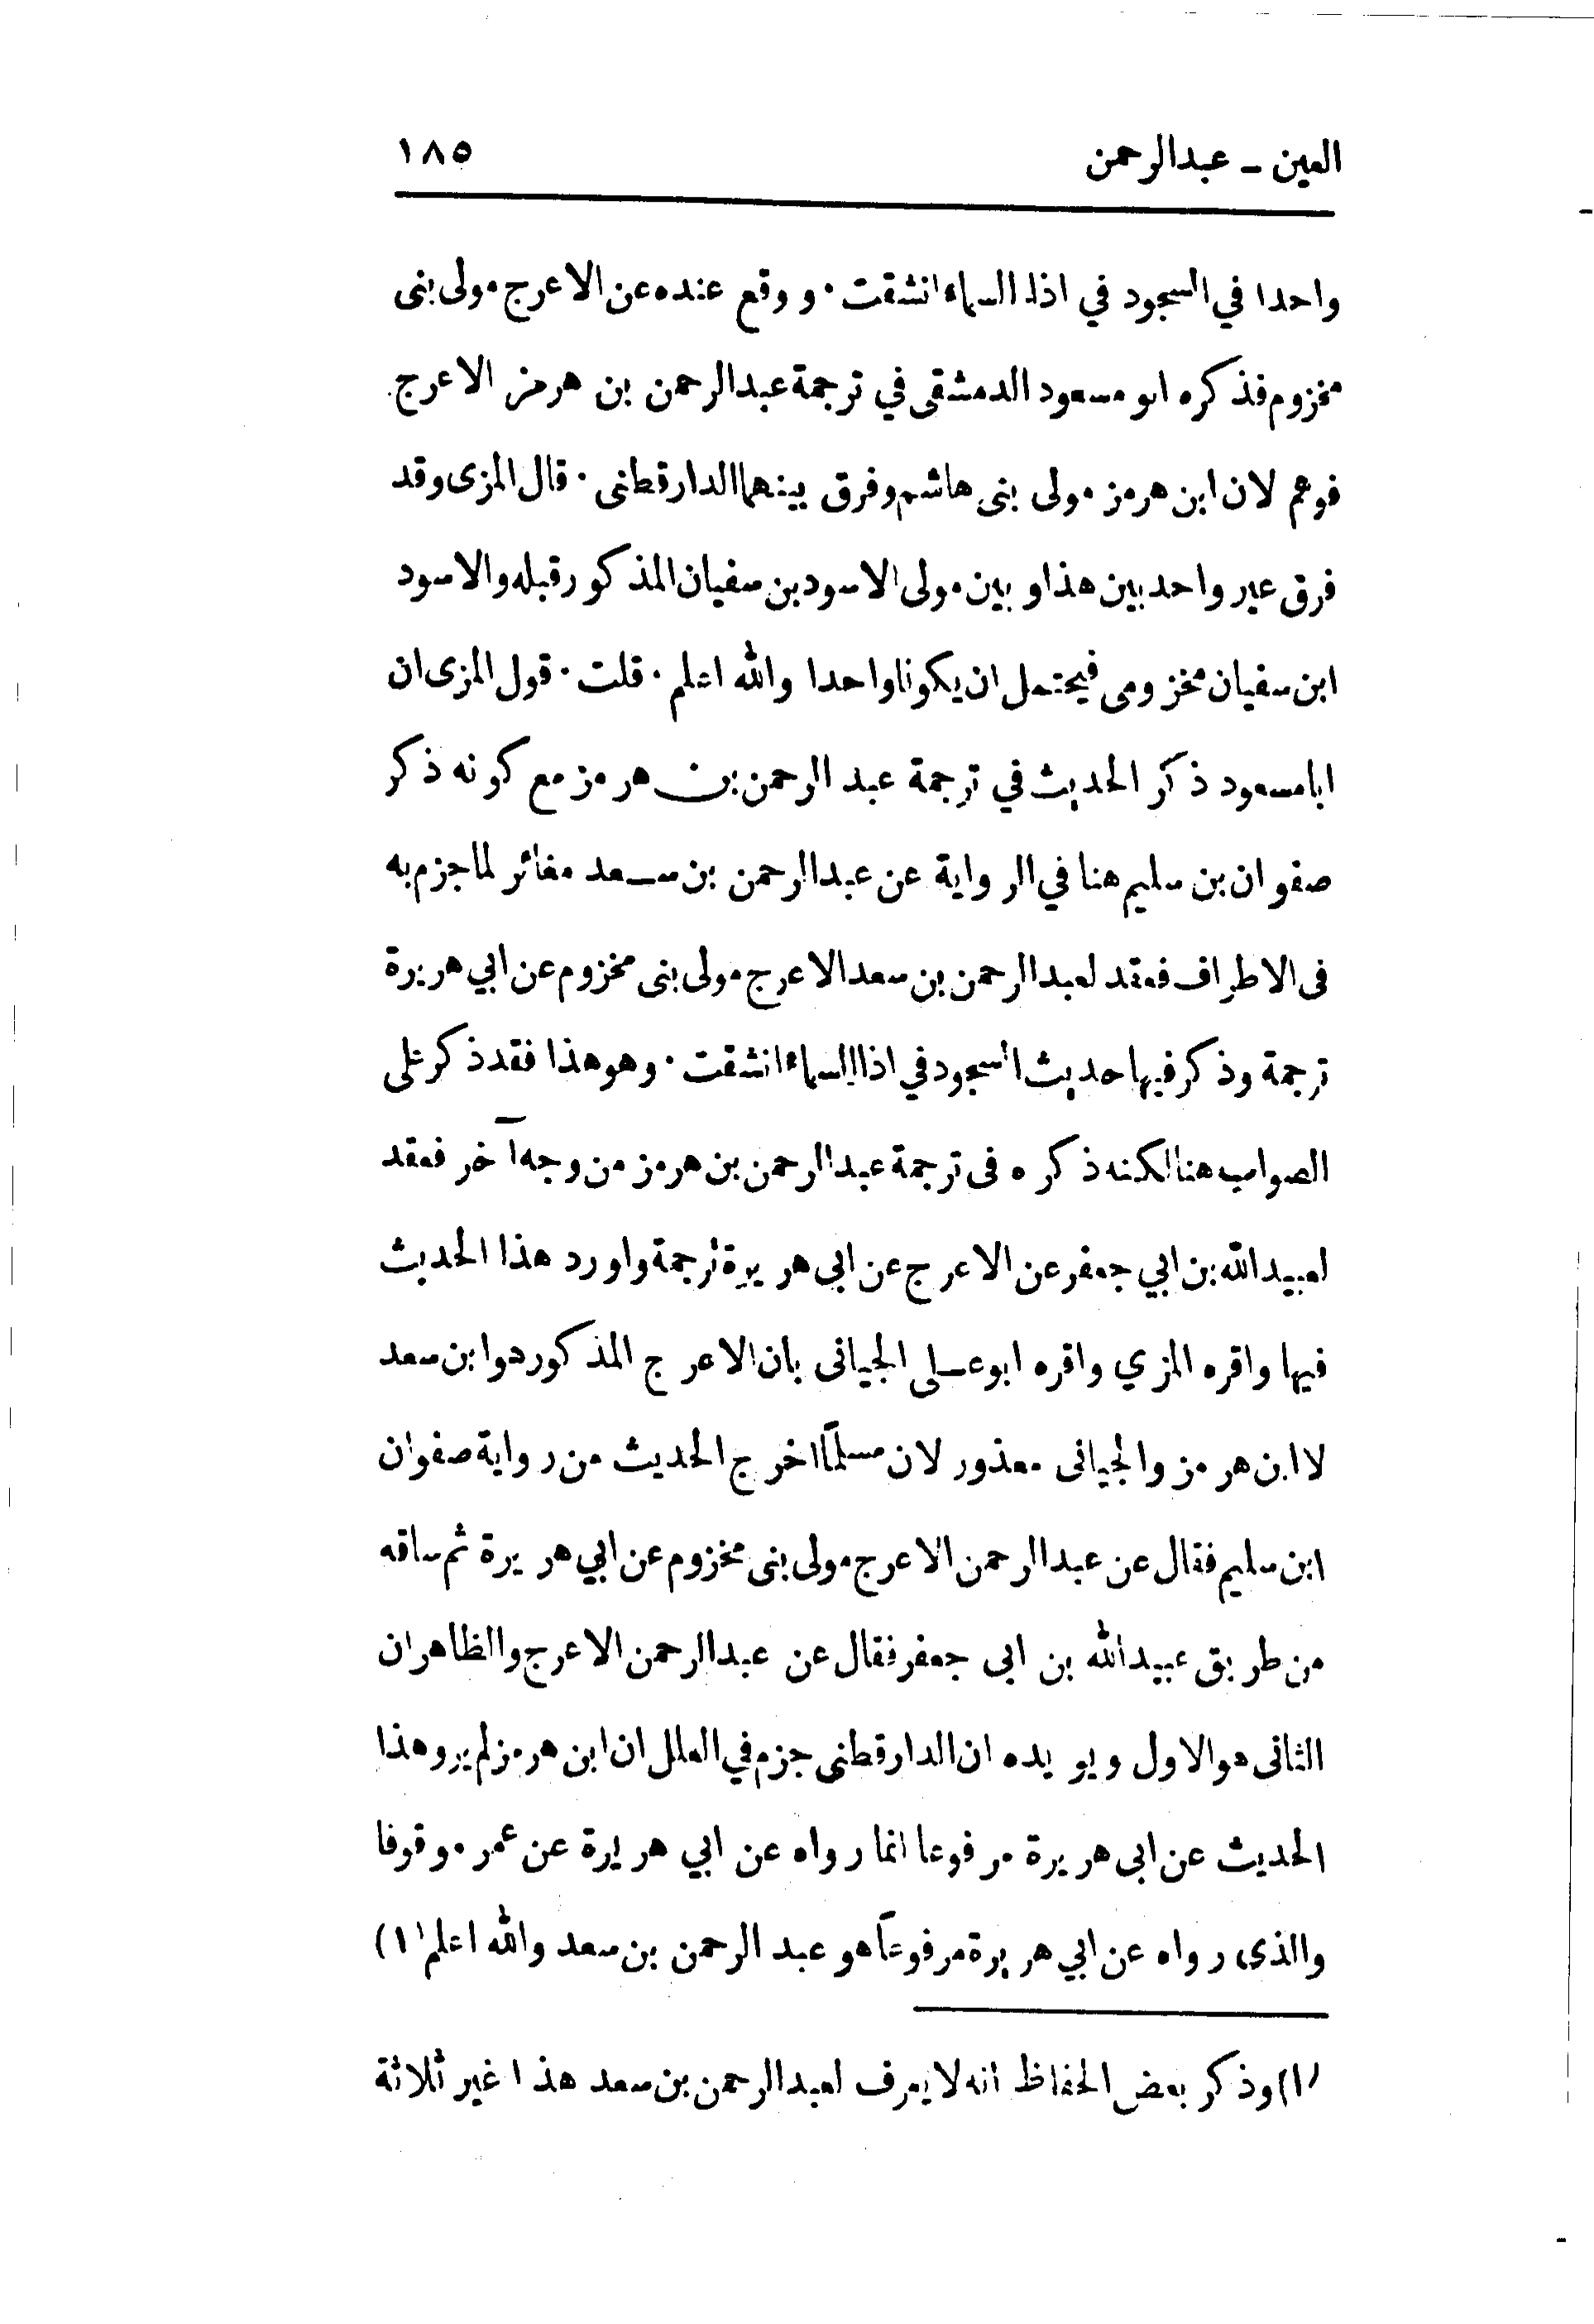 العين - عبدالرحمن ١٨٥
واحدا في السجود في اذا السماء انشقت · ووقع عنده عن الاعرج مولى بنى
مخزوم فذكره ابو مسعود الدمشقى في ترجمة عبدالرحمن بن هرمز الاعرج
فوهم لان ابن هرمز مولى بنى هاشم وفرق بينهما الدارقطنى · قال المزى وقد
فرق غير واحد بين هذا وبين مولى الاسود بن سفيان المذكور قبله والاسود
ابن سفيان مخزومى فيحتمل ان يكونا واحدا والله اعلم · قلت · قول المزى ان
ابا مسعود ذكر الحديث في ترجمة عبد الرحمن بن هرمز مع كونه ذكر
صفوان بن سليم هنا في الرواية عن عبدالرحمن بن سعد مغائر لما جزم به
فى الاطراف فعقد لعبدالرحمن بن سعد الاعرج مولى بنى مخزوم عن ابي هريرة
ترجمة وذكر فيها حديث السجود في اذا السماء انشقت · وهو هذا فقد ذكر على
الصواب هنا لكنه ذكره فى ترجمة عبدالرحمن بن هرمز من وجه آخر فعقد
لعبيدالله بن ابي جعفر عن الاعرج عن ابى هريرة ترجمة واورد هذا الحديث
فيها واقره المزي واقره ابوعلى الجيانى بان الاعرج المذكور هو ابن سعد
لا ابن هرمز والجيانى معذور لان مسلمًا اخرج الحديث من رواية صفوان
ابن سليم فقال عن عبدالرحمن الاعرج مولى بنى مخزوم عن ابي هريرة ثم ساقه
من طريق عبيدالله بن ابى جعفر فقال عن عبدالرحمن الاعرج والظاهر ان
الثانى هو الاول ويويده ان الدارقطنى جزم في العلل ان ابن هرمز لم يرو هذا
الحديث عن ابى هريرة مرفوعا انما رواه عن ابي هريرة عن عمر موقوفا
والذى رواه عن ابي هريرة مرفوعًا هو عبد الرحمن بن سعد والله اعلم (١)
(١) وذكر بعض الحفاظ انه لا يعرف لعبدالرحمن بن سعد هذا غير ثلاثة